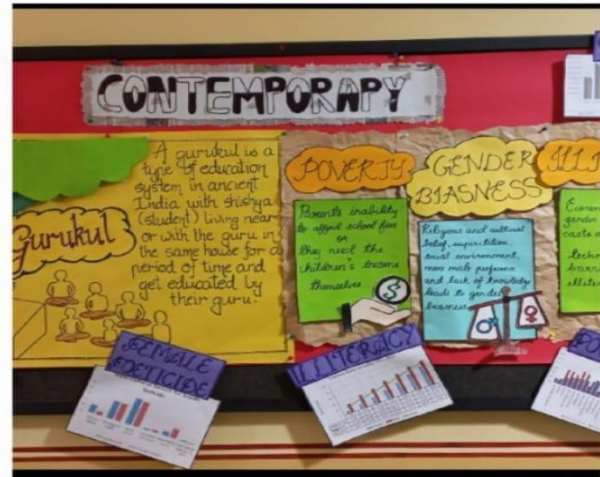 CONTEMPORARY
Gurukul
A gurukul is a
type of education
system in ancient
India with shishya
(student) living near
or with the guru in
the same house for a
period of time and
get educated by
their guru.
POVERTY
Parents inability
to afford school fees
or
they need the
children's income
themselves
$
GENDER
BIASNESS
Religious and cultural
belief, superstition,
social environment,
more male preference
and lack of knowledge
leads to gender
biasness
ILLI
Econom
gender
caste
techn
learn
illiter
FEMALE
FOETICIDE
ILLITERACY
PO